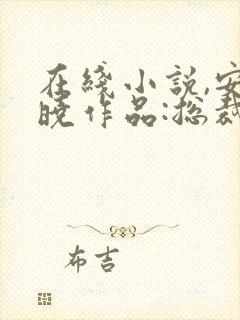 在线小说,安
晓作品:总裁
布吉